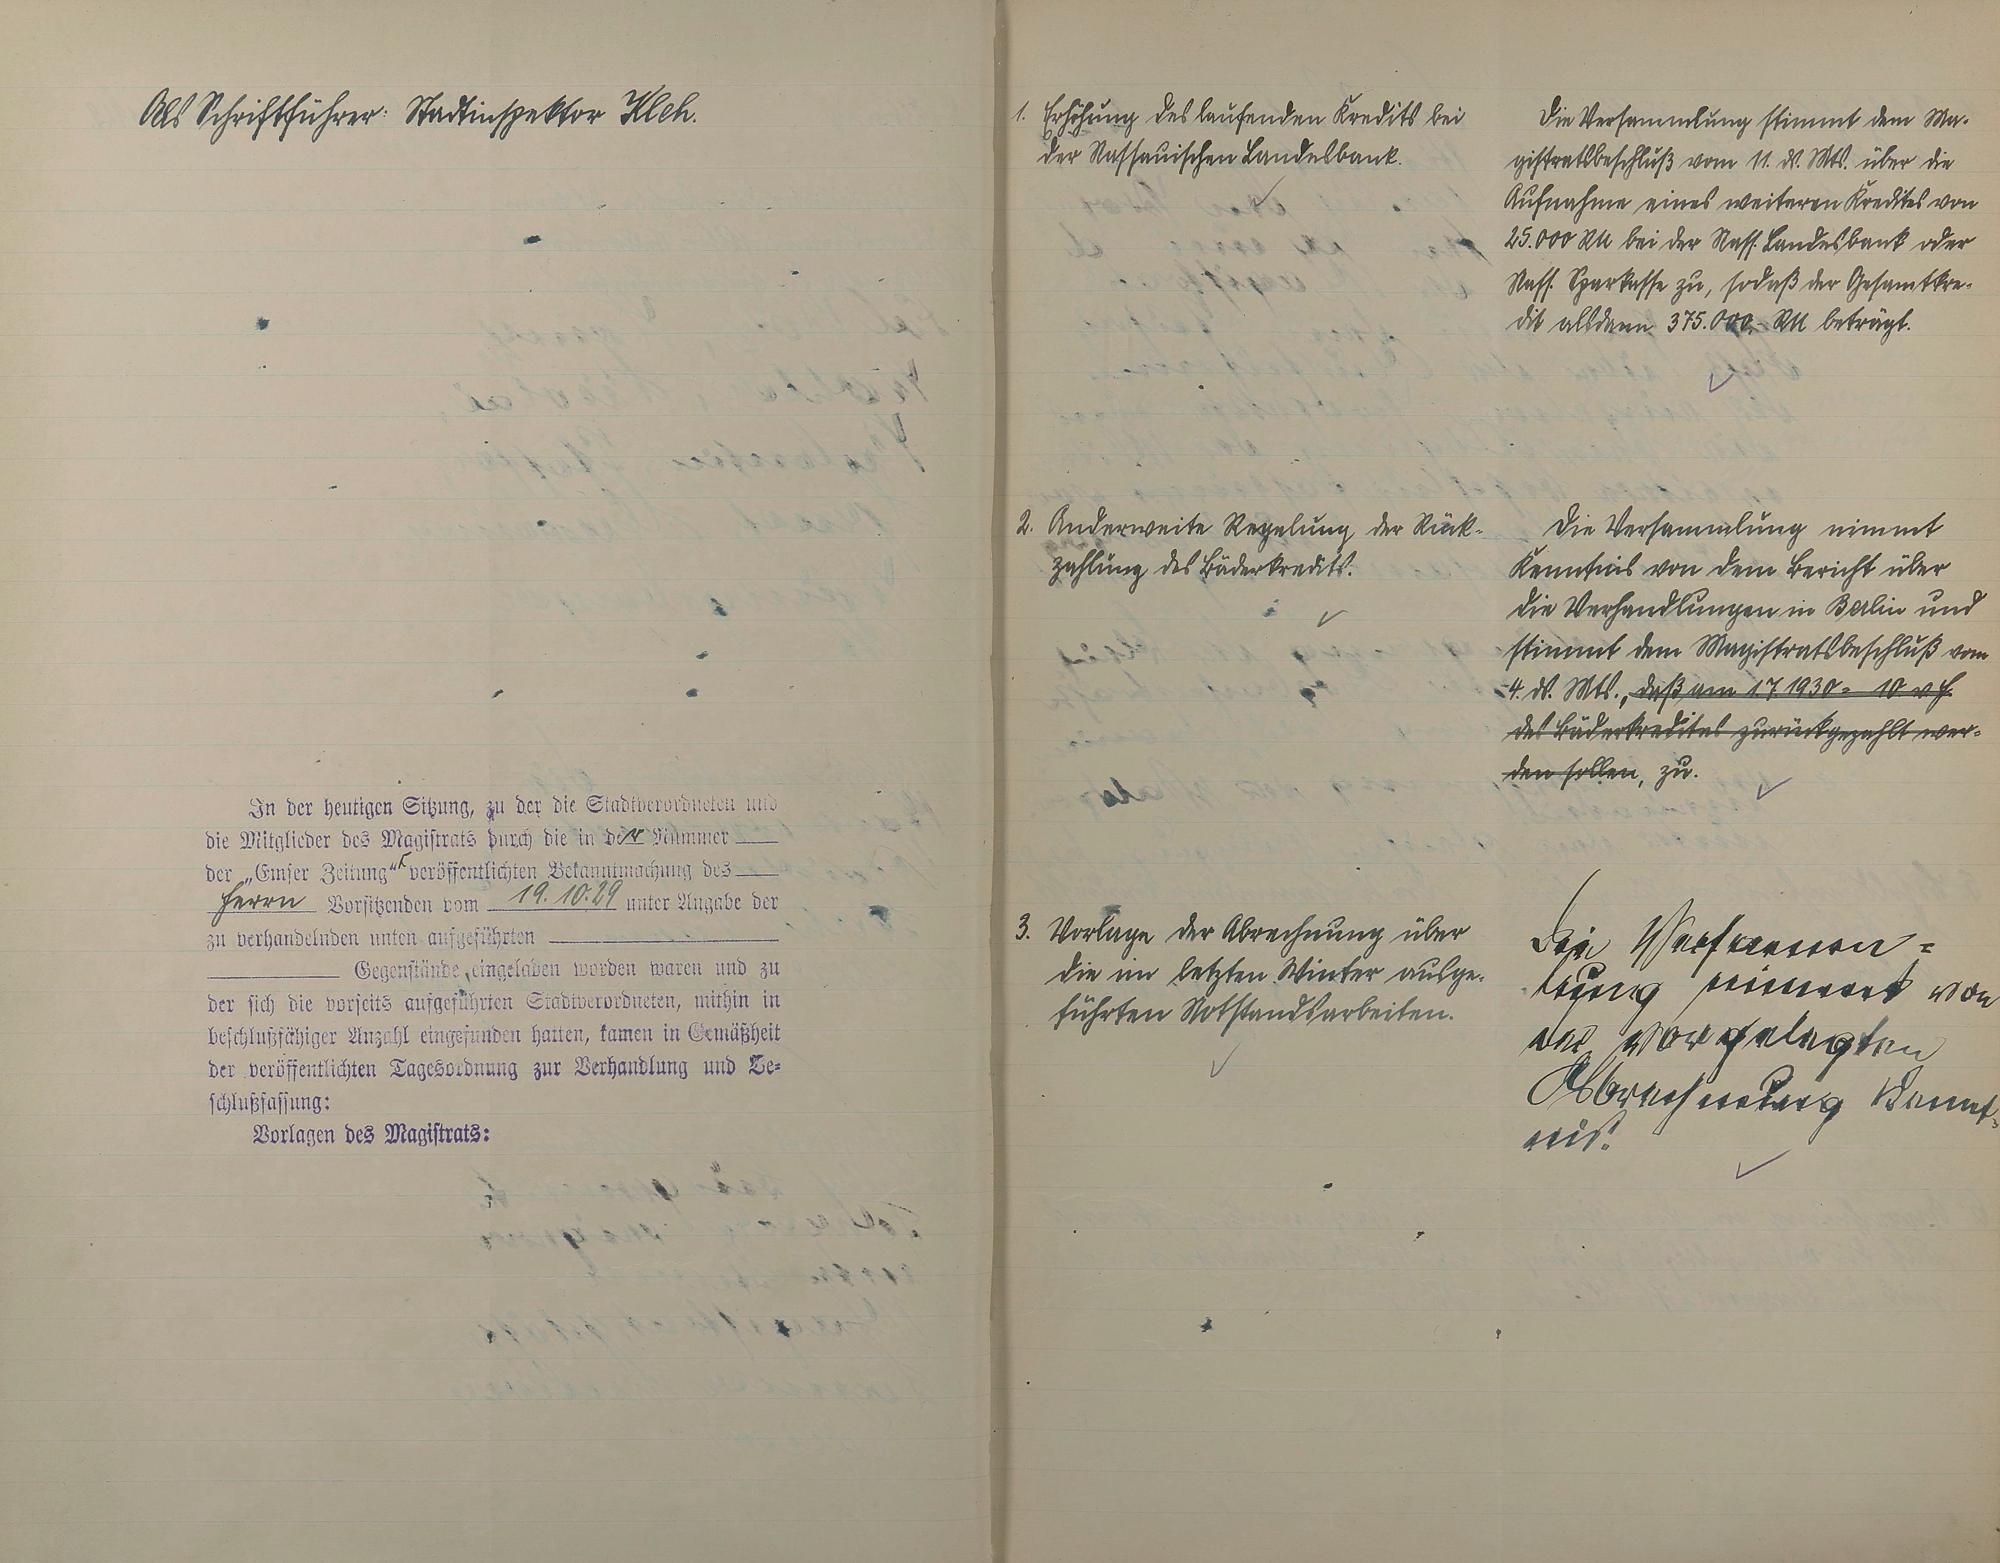 Als Schriftführer: Stadtinspektor
In der heutigen Sitzung, zu der die Stadtverordneten und
die Mitglieder des Magistrats durch die in der Nummer
der „Emser Zeitung“ veröffentlichten Bekanntmachung des
Herrn Vorsitzenden vom 19.10.29 unter Angabe der
zu verhandelnden unten aufgeführten
Gegenstände eingeladen worden waren und zu
der sich die vorseits aufgeführten Stadtverordneten, mithin in
beschlußfähiger Anzahl eingefunden hatten, kamen in Gemäßheit
der veröffentlichten Tagesordnung zur Verhandlung und Be-
schlußfassung:
Vorlagen des Magistrats:
1. Erhöhung des laufenden Kredits bei
der Nassauischen Landesbank.
Die Versammlung stimmt dem Ma-
gistratsbeschluß vom 11. ds. Mts. über die
Aufnahme eines weiteren Kredites von
25.000 RM bei der Nass. Landesbank oder
Nass. Sparkasse zu, sodaß der Gesamtkre-
dit alsdann 375.000,- RM beträgt.
2. Anderweite Regelung der Rück-
zahlung des Bäderkredits.
Die Versammlung nimmt
Kenntnis von dem Bericht über
die Verhandlungen in Berlin und
stimmt dem Magistratsbeschluß vom
4. ds. Mts., daß am 1.7.1930 = 10 v.H.
des Bäderkredites zurückgezahlt wer-
den sollen, zu.
3. Vorlage der Abrechnung über
die im letzten Winter ausge-
führten Notstandsarbeiten.
Die Versamm-
lung nimmt von
der vorgelegten
Abrechnung Kennt-
nis.